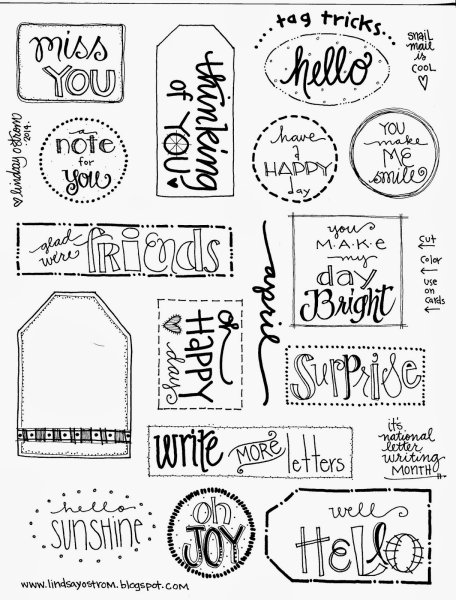 miss
YOU
thinking
of
YOU
tag tricks...
hello
snail
mail
is
cool
lindsay ostrom
2014.
a
note
for
you
have
a
HAPPY
day
YOU
make
ME
smile
glad
we're
friends
april
you
MAKE
my
day
Bright
cut
color
use
on
cards
oh
Happy
day
Surprise
write
MORE
letters
it's
national
letter
writing
MONTH
hello
SUNSHINE
oh
JOY
well
HELLO
www.lindsayostrom.blogspot.com